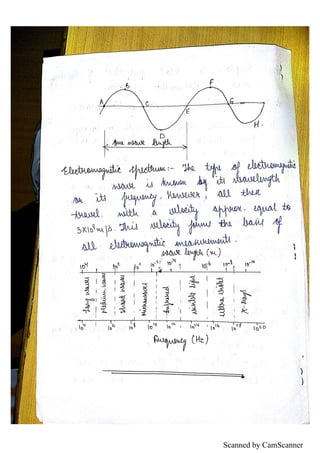 A B C D E F G H.
one wave length
Electromagnetic spectrum:- The type of electromagnetic
wave is known by its wavelength
or its frequency. However, all these
travel with a velocity approx. equal to
3x10⁸ m/s. This velocity forms the basis of
all electromagnetic measurements.
wave length (m)
10⁴
Long waves
Medium waves
Short waves
Microwaves
Infrared
Visible light
Ultra violet
X-Rays
10²⁰
Frequency (Hz)
Scanned by CamScanner